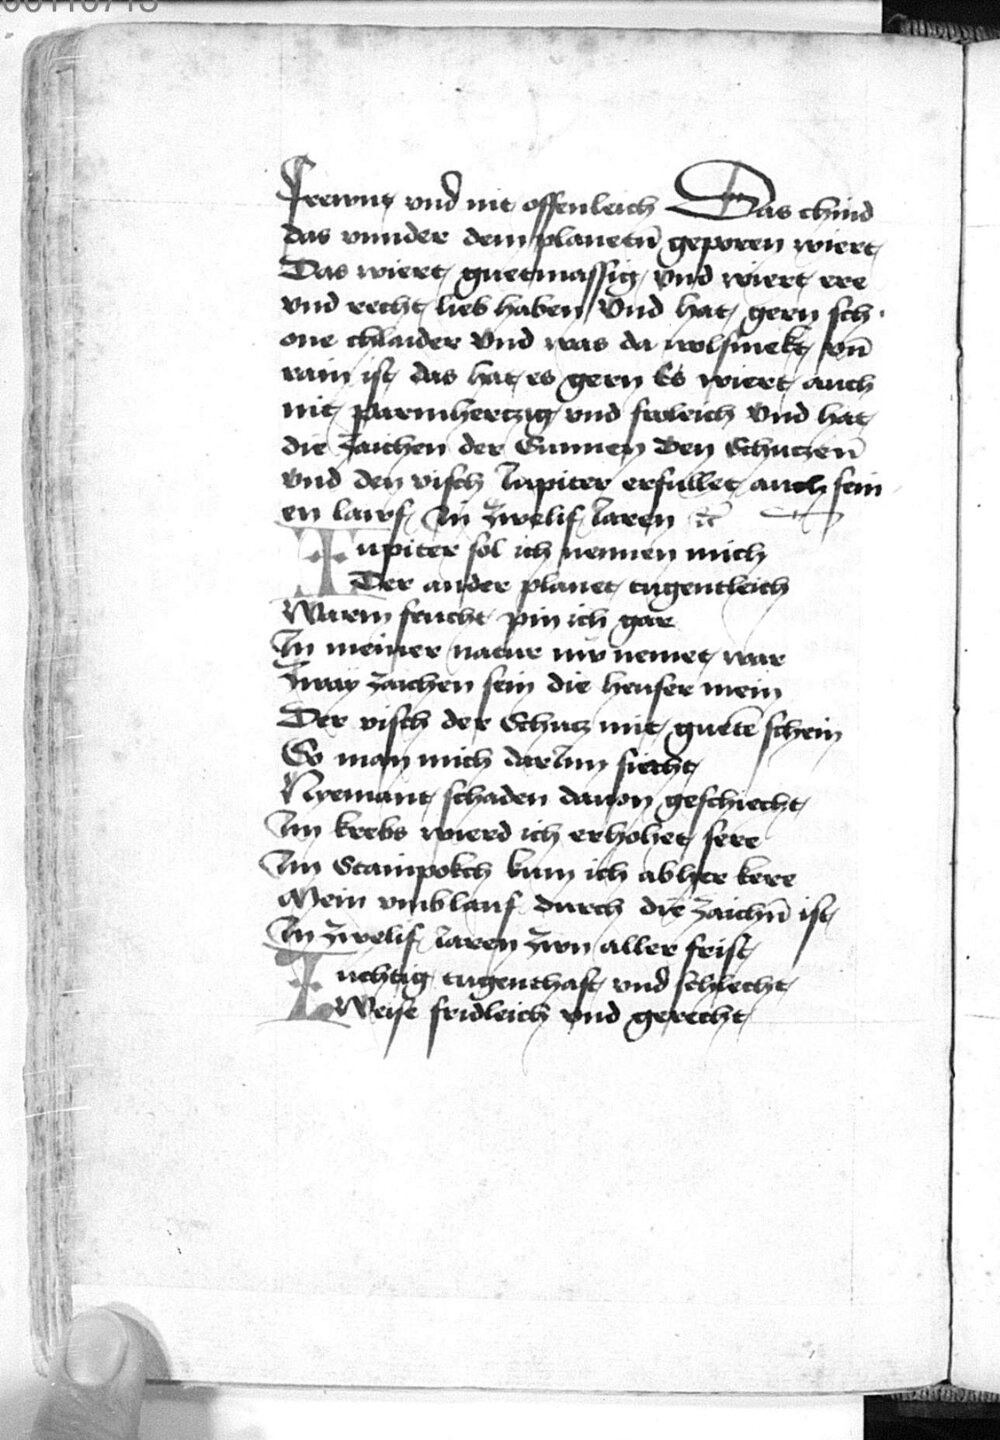 frewnt vnd nit offenleich Das chind
das vnnder dem planetn̄ geporen wiert
Das wiert guetmassig vnd wiert ere
vnd recht lieb haben Vnd hat gern sch
one chlaider Vnd was da wolsmekt vn̄
rain ist das hat es gern Es wiert auch
mit parmhertzig vnd froleich Vnd hat
die zaichen der Sunnen Den Schutzen̄
Vnd den visch Iupiter erfullet auch sein
en lauf In zwelif Iaren ꝛc̄
Iupiter sol ich nennen mich
Der ander planet tugentleich
Warm feucht pin ich gar
In meiner natur nw nemet war
Zway zaichen sein die heuser mein
Der visch der Schutz mit guetē schein
So man mich darInn siecht
Nyemant schaden dauon geschiecht
Im krebs wierd ich erhohet sere
Im Stainpokch kum ich abher kere
Mein vmblauf durch die zaichn̄ ist
In zwelif Iaren zwn aller frist
Zuchtig tugenthaft vnd schlecht
Weise fridleich vnd gerecht